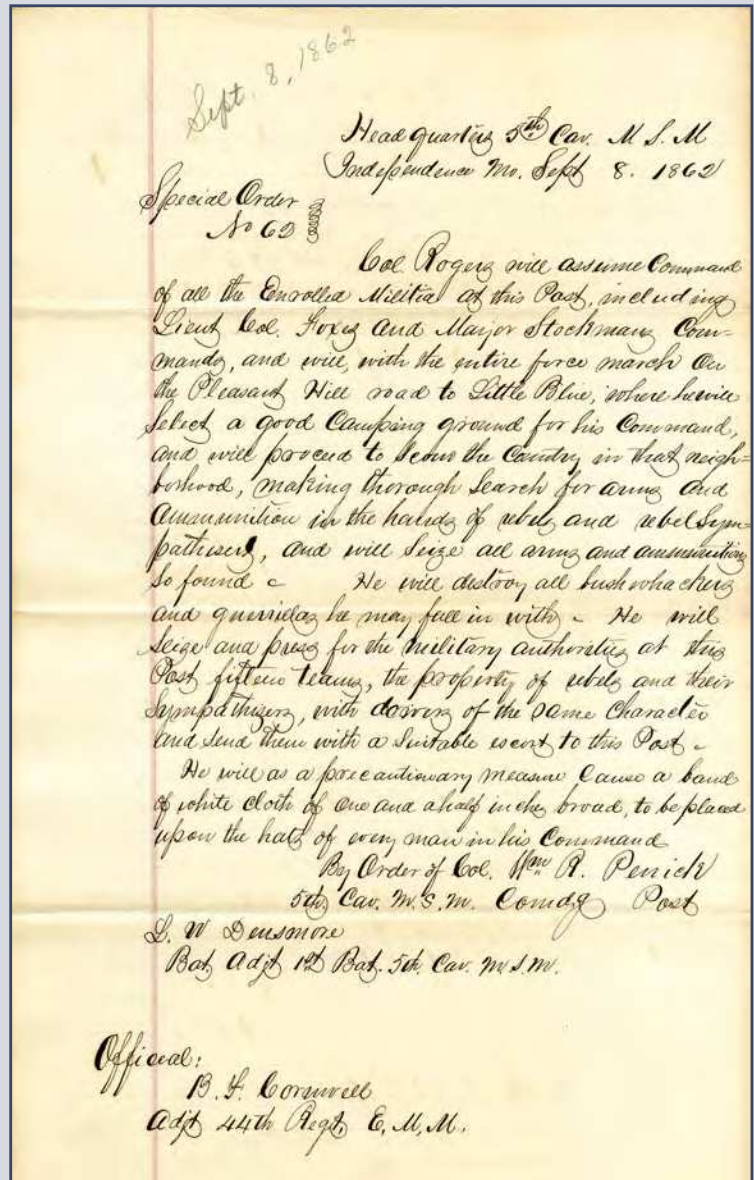 Sept. 8, 1862
Head quarters 5th Cav. M S. M
Independence Mo. Sept 8. 1862
Special Order
No 62
Col. Rogers will assume Command
of all the Enrolled Militia at this Post, including
Lieut Col. Foxes and Major Stockmans Com=
mands, and will, with the entire force march On
the Pleasant Hill road to Little Blue, where he will
Select a good Camping ground for his Command,
and will proceed to Scour the Country in that neigh=
borhood, making thorough Search for arms and
Ammunition in the hands of rebels and rebel Sym=
pathisers, and will Seize all arms and ammunition
So found - He will destroy all bushwhackers
and guerrillas he may fall in with - He will
Seige and press for the military authorities at this
Post fifteen teams, the property of rebels and their
Sympathizers, with drivers of the Same Character
and Send them with a Suitable escort to this Post -
He will as a precautionary measure Cause a band
of white cloth of one and a half inches broad, to be placed
upon the hats of every man in his Command
By Order of Col. Wm R. Penick
5th Cav. M. S. M. Comdg Post
L. W Densmore
Bat Adjt 1st Bat. 5th Cav. M S. M.
Official:
B. F. Cornwell
Adjt 44th Regt, E, M, M.